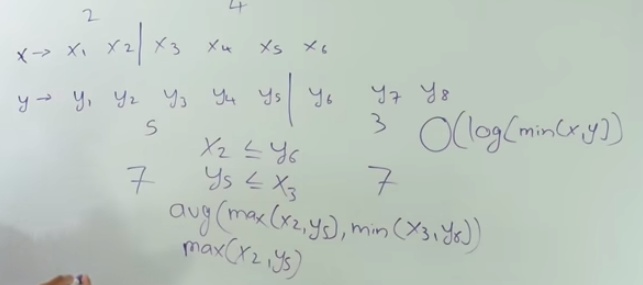 2 4
x → x₁ x₂ | x₃ x₄ x₅ x₆
y → y₁ y₂ y₃ y₄ y₅ | y₆ y₇ y₈
5 3 O(log(min(x,y))
x₂ ≤ y₆
7 y₅ ≤ x₃ 7
avg(max(x₂,y₅), min(x₃,y₆))
max(x₂,y₅)